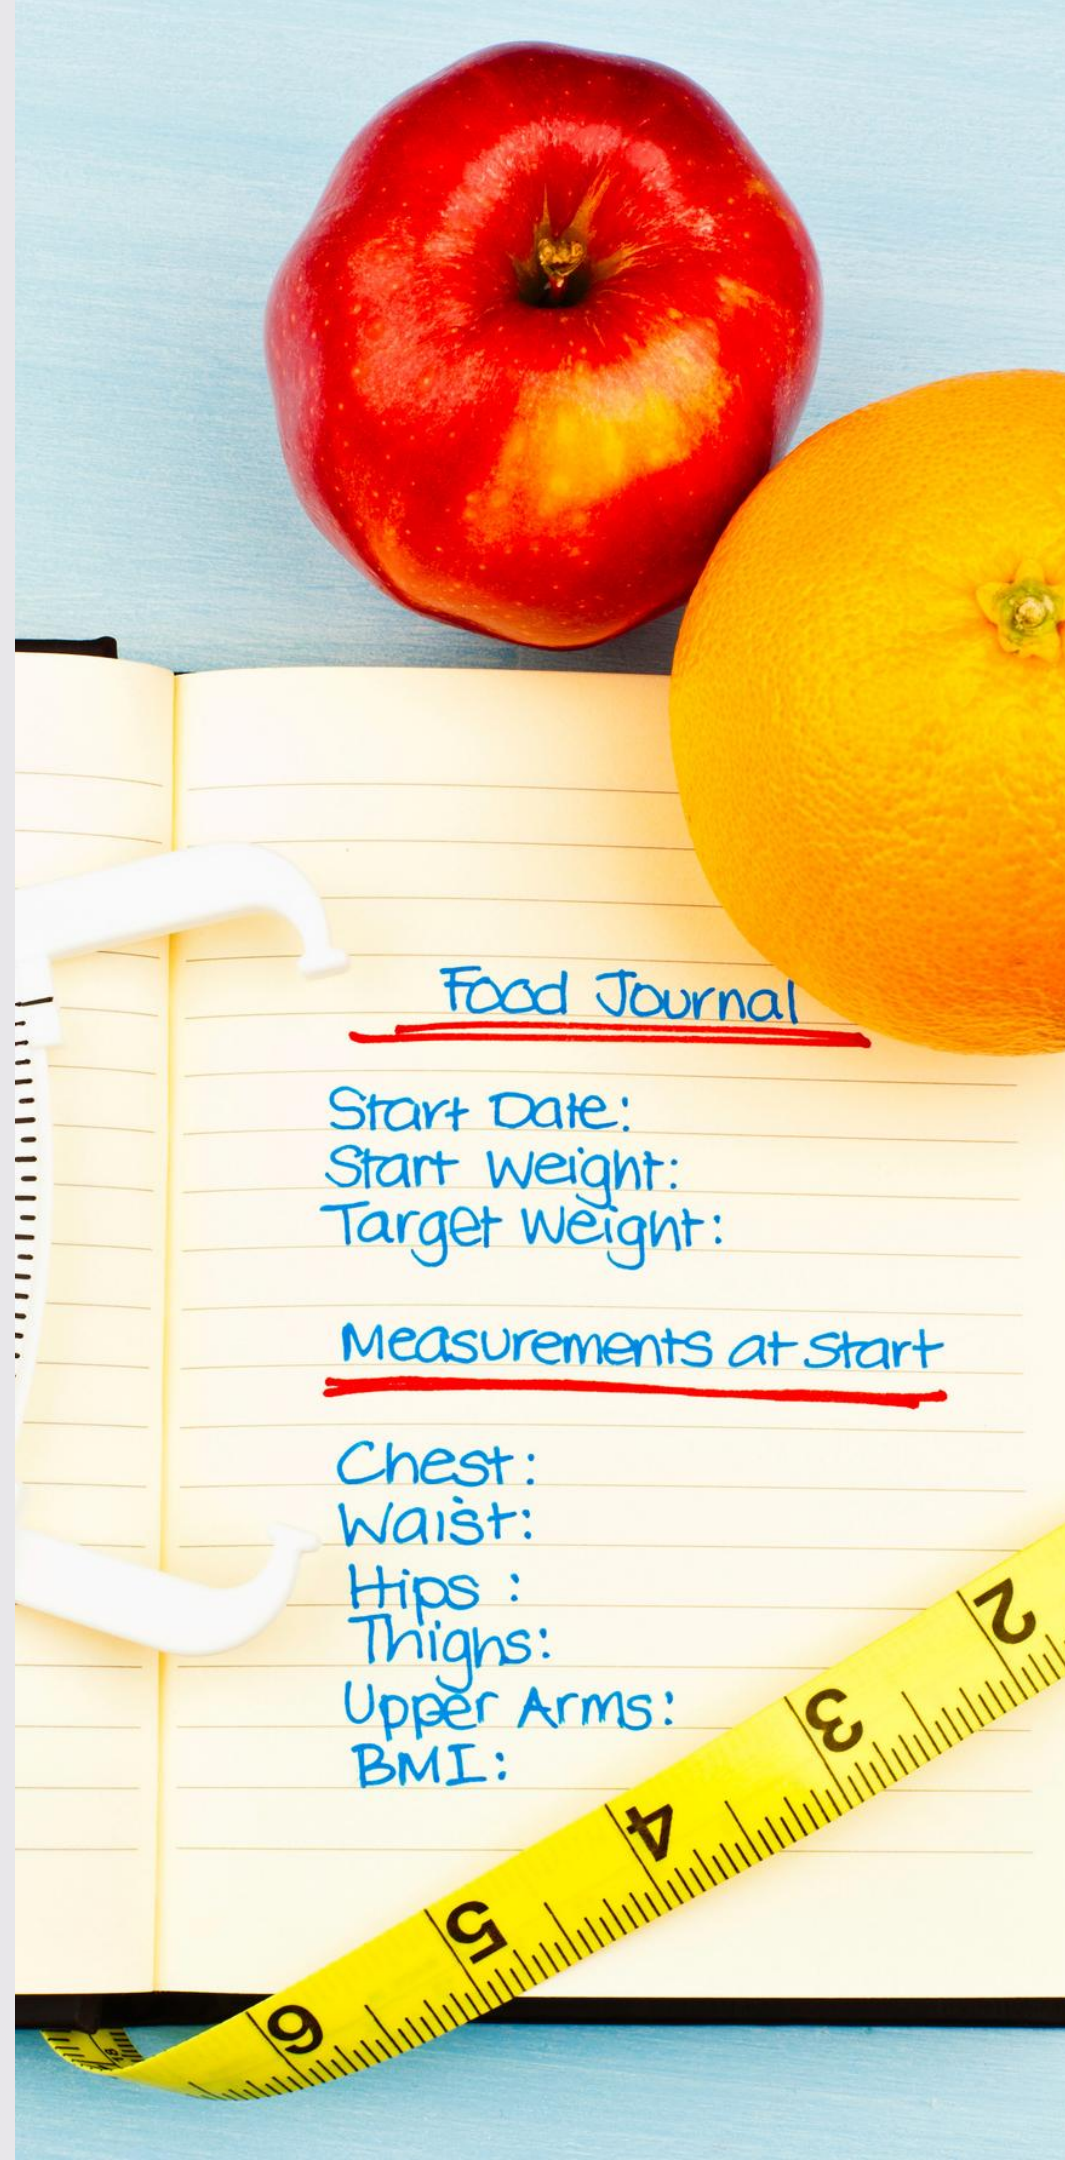 Food Journal
Start Date:
Start Weight:
Target Weight:
Measurements at Start
Chest:
Waist:
Hips :
Thighs:
Upper Arms:
BMI:
2
3
4
5
6